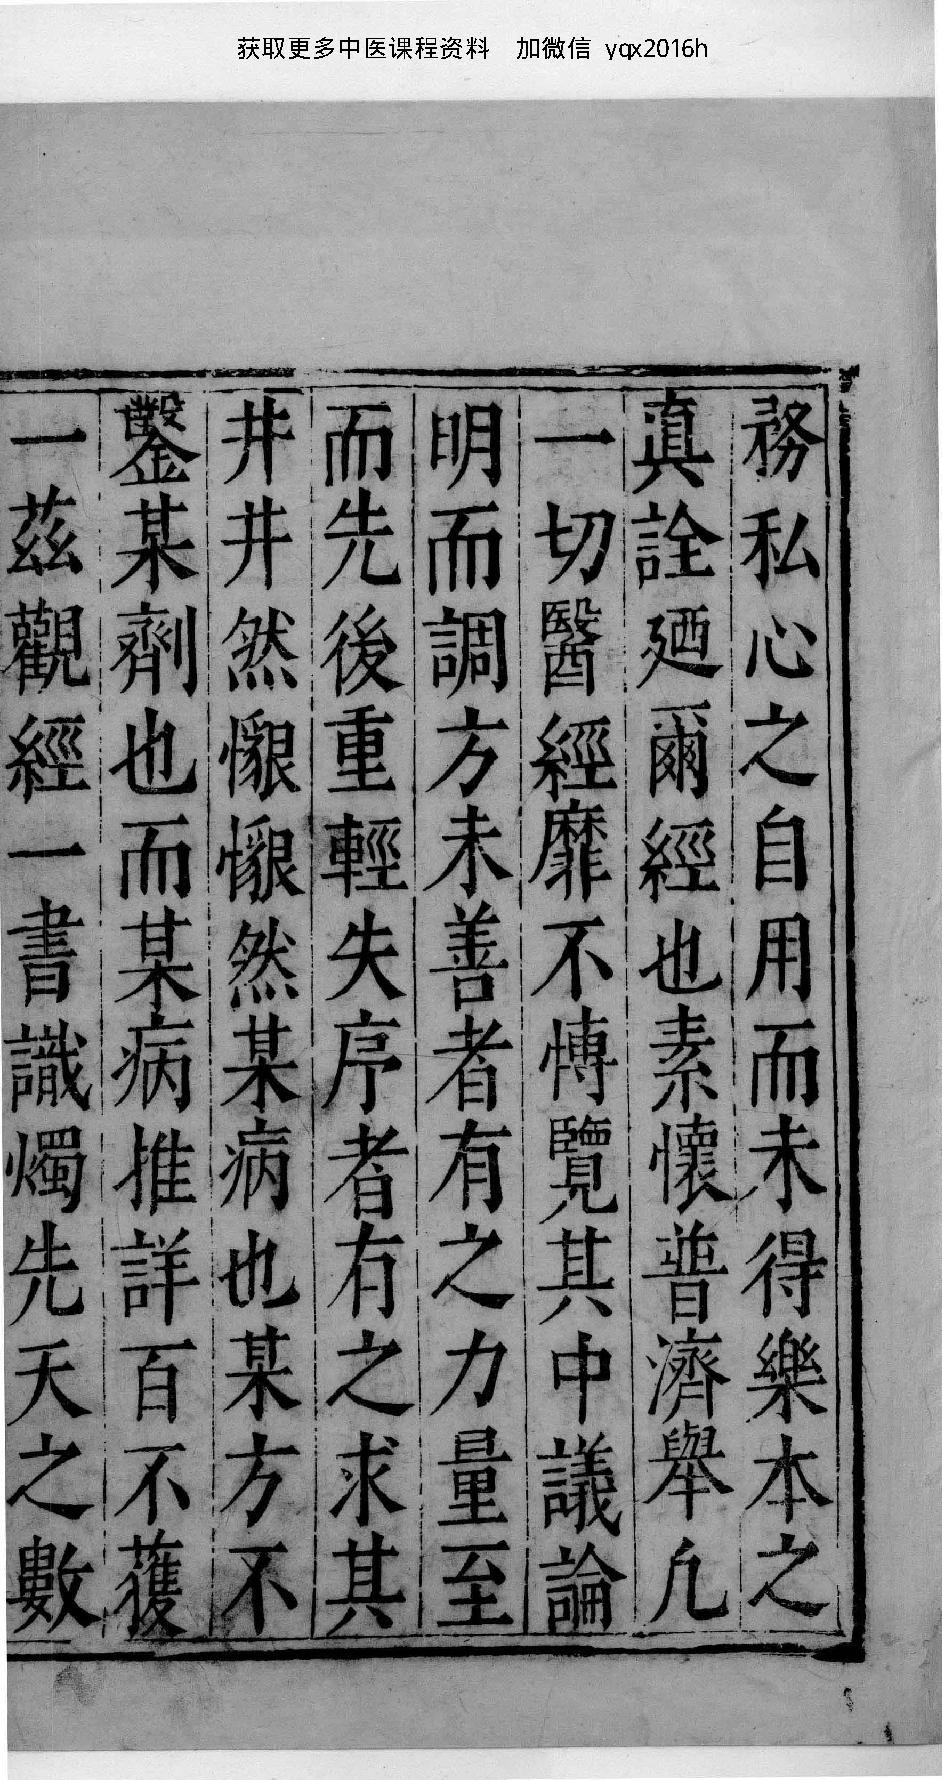 获取更多中医课程资料 加微信 yqx2016h
務私心之自用而未得樂本之
眞詮廼爾經也素懷普濟舉凢
一切醫經靡不愽覽其中議論
明而調方未善者有之力量至
而先後重輕失序者有之求其
井井然懇懇然某病也某方不
鑿某劑也而某病推詳百不獲
一茲觀經一書識燭先天之數